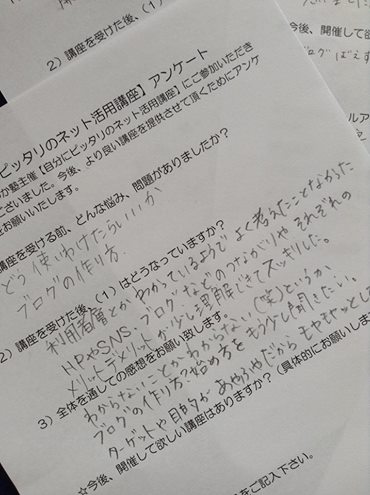 2）講座を受けた後、（1）
今後、開催して欲
ブログばえす
ピッタリのネット活用講座】アンケート
か塾主催【自分にピッタリのネット活用講座】にご参加いただき
ございました。今後、より良い講座を提供させて頂くためにアンケ
をお願いいたします。
講座を受ける前、どんな悩み、問題がありましたか？
どう使いわけたらいいか
ブログの作り方.
2）講座を受けた後、（1）はどうなっていますか？
利用者層とかわかっているようでよく考えたことなかった
HPやSNS・ブログなどのつながりやそれぞれの
メリットデメリットが少し理解できてスッキリした。
3）全体を通しての感想をお願い致します。
わからないことがわからない（笑）というか
ブログの作り方？始め方をもう少し聞きたい。
ターゲットや目的があやふやだからモヤモヤっとし
☆今後、開催して欲しい講座はありますか？（具体的にお願いしま
をご記入下さい。